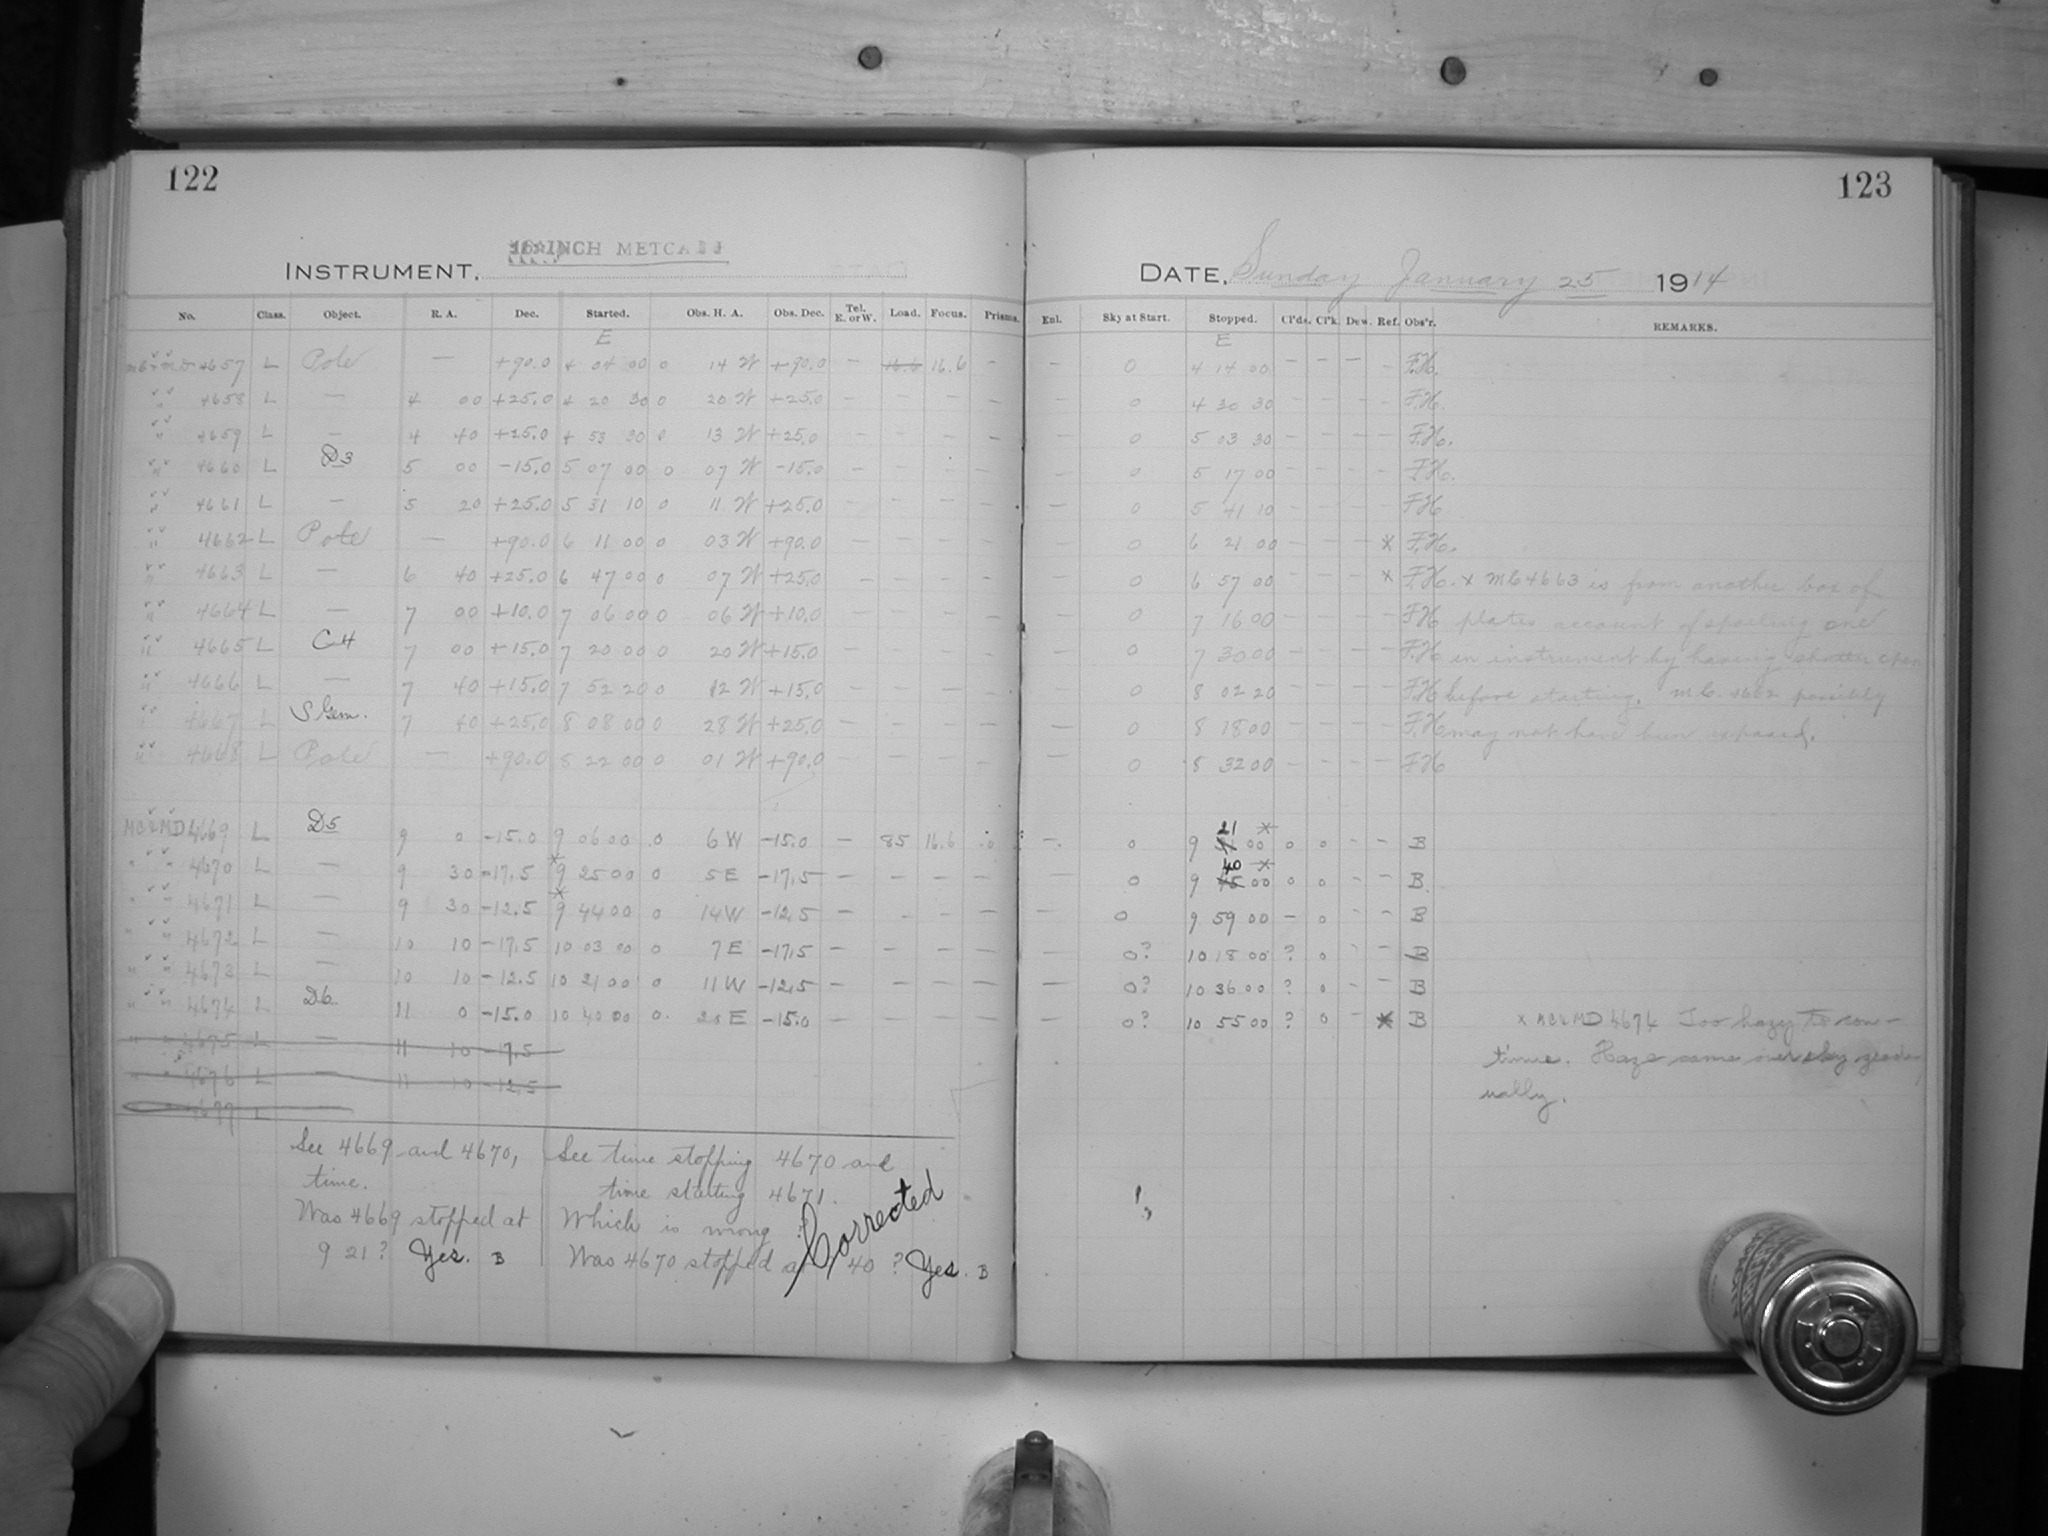 122
123
INSTRUMENT, 16-INCH METCALF
DATE, Sunday January 25 1914
No. Class. Object. R. A. Dec. Started. Obs. H. A. Obs. Dec. Tel. E. or W. Load. Focus. Prisms. Enl. Sky at Start. Stopped. Cl'ds. Cl'k. Dew. Ref. Obs'r. REMARKS.
E E
4657 L Pole — +90.0 4 04 00 0 14 W +90.0 — 16.6 16.6 — — 0 4 14 00 — — — F.H.
" 4658 L — 4 00 +25.0 4 20 30 0 20 W +25.0 — — — — — 0 4 30 30 — — — — F.H.
" 4659 L — 4 40 +25.0 4 53 30 0 13 W +25.0 — — — — — 0 5 03 30 — — — — F.H.
" 4660 L D3 5 00 -15.0 5 07 00 0 07 W -15.0 — — — — — 0 5 17 00 — — — — F.H.
" 4661 L — 5 20 +25.0 5 31 10 0 11 W +25.0 — — — — — 0 5 41 10 — — — — FH
" 4662 L Pole — +90.0 6 11 00 0 03 W +90.0 — — — — — 0 6 21 00 — — — x F.H.
" 4663 L — 6 40 +25.0 6 47 00 0 07 W +25.0 — — — — — 0 6 57 00 — — — x F.H. x MC 4663 is from another box of
" 4664 L — 7 00 +10.0 7 06 00 0 06 W +10.0 — — — — — 0 7 16 00 — — — — FH plates account of spoiling one
" 4665 L C4 7 00 +15.0 7 20 00 0 20 W +15.0 — — — — — 0 7 30 00 — — — — F.H in instrument by having shutter open
" 4666 L — 7 40 +15.0 7 52 20 0 12 W +15.0 — — — — — 0 8 02 20 — — — — F.H before starting. MC. 4662 possibly
" 4667 L S Gem. 7 40 +25.0 8 08 00 0 28 W +25.0 — — — — — 0 8 18 00 — — — — F.H may not have been exposed.
" 4668 L Pole — +90.0 8 22 00 0 01 W +90.0 — — — — — 0 8 32 00 — — — — FH
MC & MD 4669 L D5 9 0 -15.0 9 06 00 0 6 W -15.0 — 85 16.6 0 — 0 9 21 x 00 0 0 - - B
" " 4670 L — 9 30 -17.5 x 9 25 00 0 5 E -17.5 — — — — — 0 9 40 x 45 00 0 0 - - B.
" " 4671 L — 9 30 -12.5 x 9 44 00 0 14 W -12.5 — - — — — 0 9 59 00 - 0 - - B
" " 4672 L — 10 10 -17.5 10 03 00 0 7 E -17.5 — — — — — 0? 10 18 00 ? 0 - - B
" " 4673 L — 10 10 -12.5 10 21 00 0 11 W -12.5 — — — — — 0? 10 36 00 ? 0 - - B
" " 4674 L D6. 11 0 -15.0 10 40 00 0. 20 E -15.0 — — — — — 0? 10 55 00 ? 0 - x B x MC & MD 4674 Too hazy to con-
" " 4675 L — 11 10 -17.5
tinue. Haze came over sky grad-
" " 4676 L — 11 10 -12.5
ually.
4677 L
See 4669 and 4670,
time.
Was 4669 stopped at
9 21? Yes. B
See time stopping 4670 and
time starting 4671.
Which is wrong
Was 4670 stopped at 40 ? Yes. B
Corrected